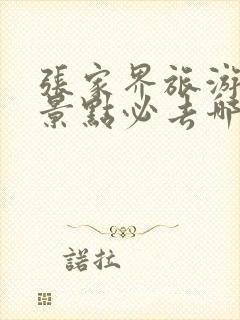 張家界旅游
景點必去哪
諾拉